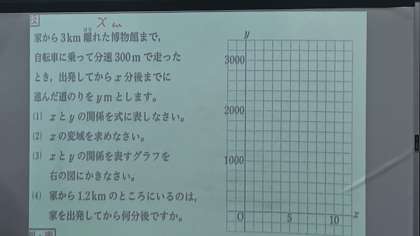 家から3km離れた博物館まで,
自転車に乗って分速300mで走った
とき, 出発してからx分後までに
進んだ道のりをymとします。
(1) xとyの関係を式に表しなさい。
(2) xの変域を求めなさい。
(3) xとyの関係を表すグラフを
右の図にかきなさい。
(4) 家から1.2kmのところにいるのは,
家を出発してから何分後ですか。
y
3000
2000
1000
O
5
10
x